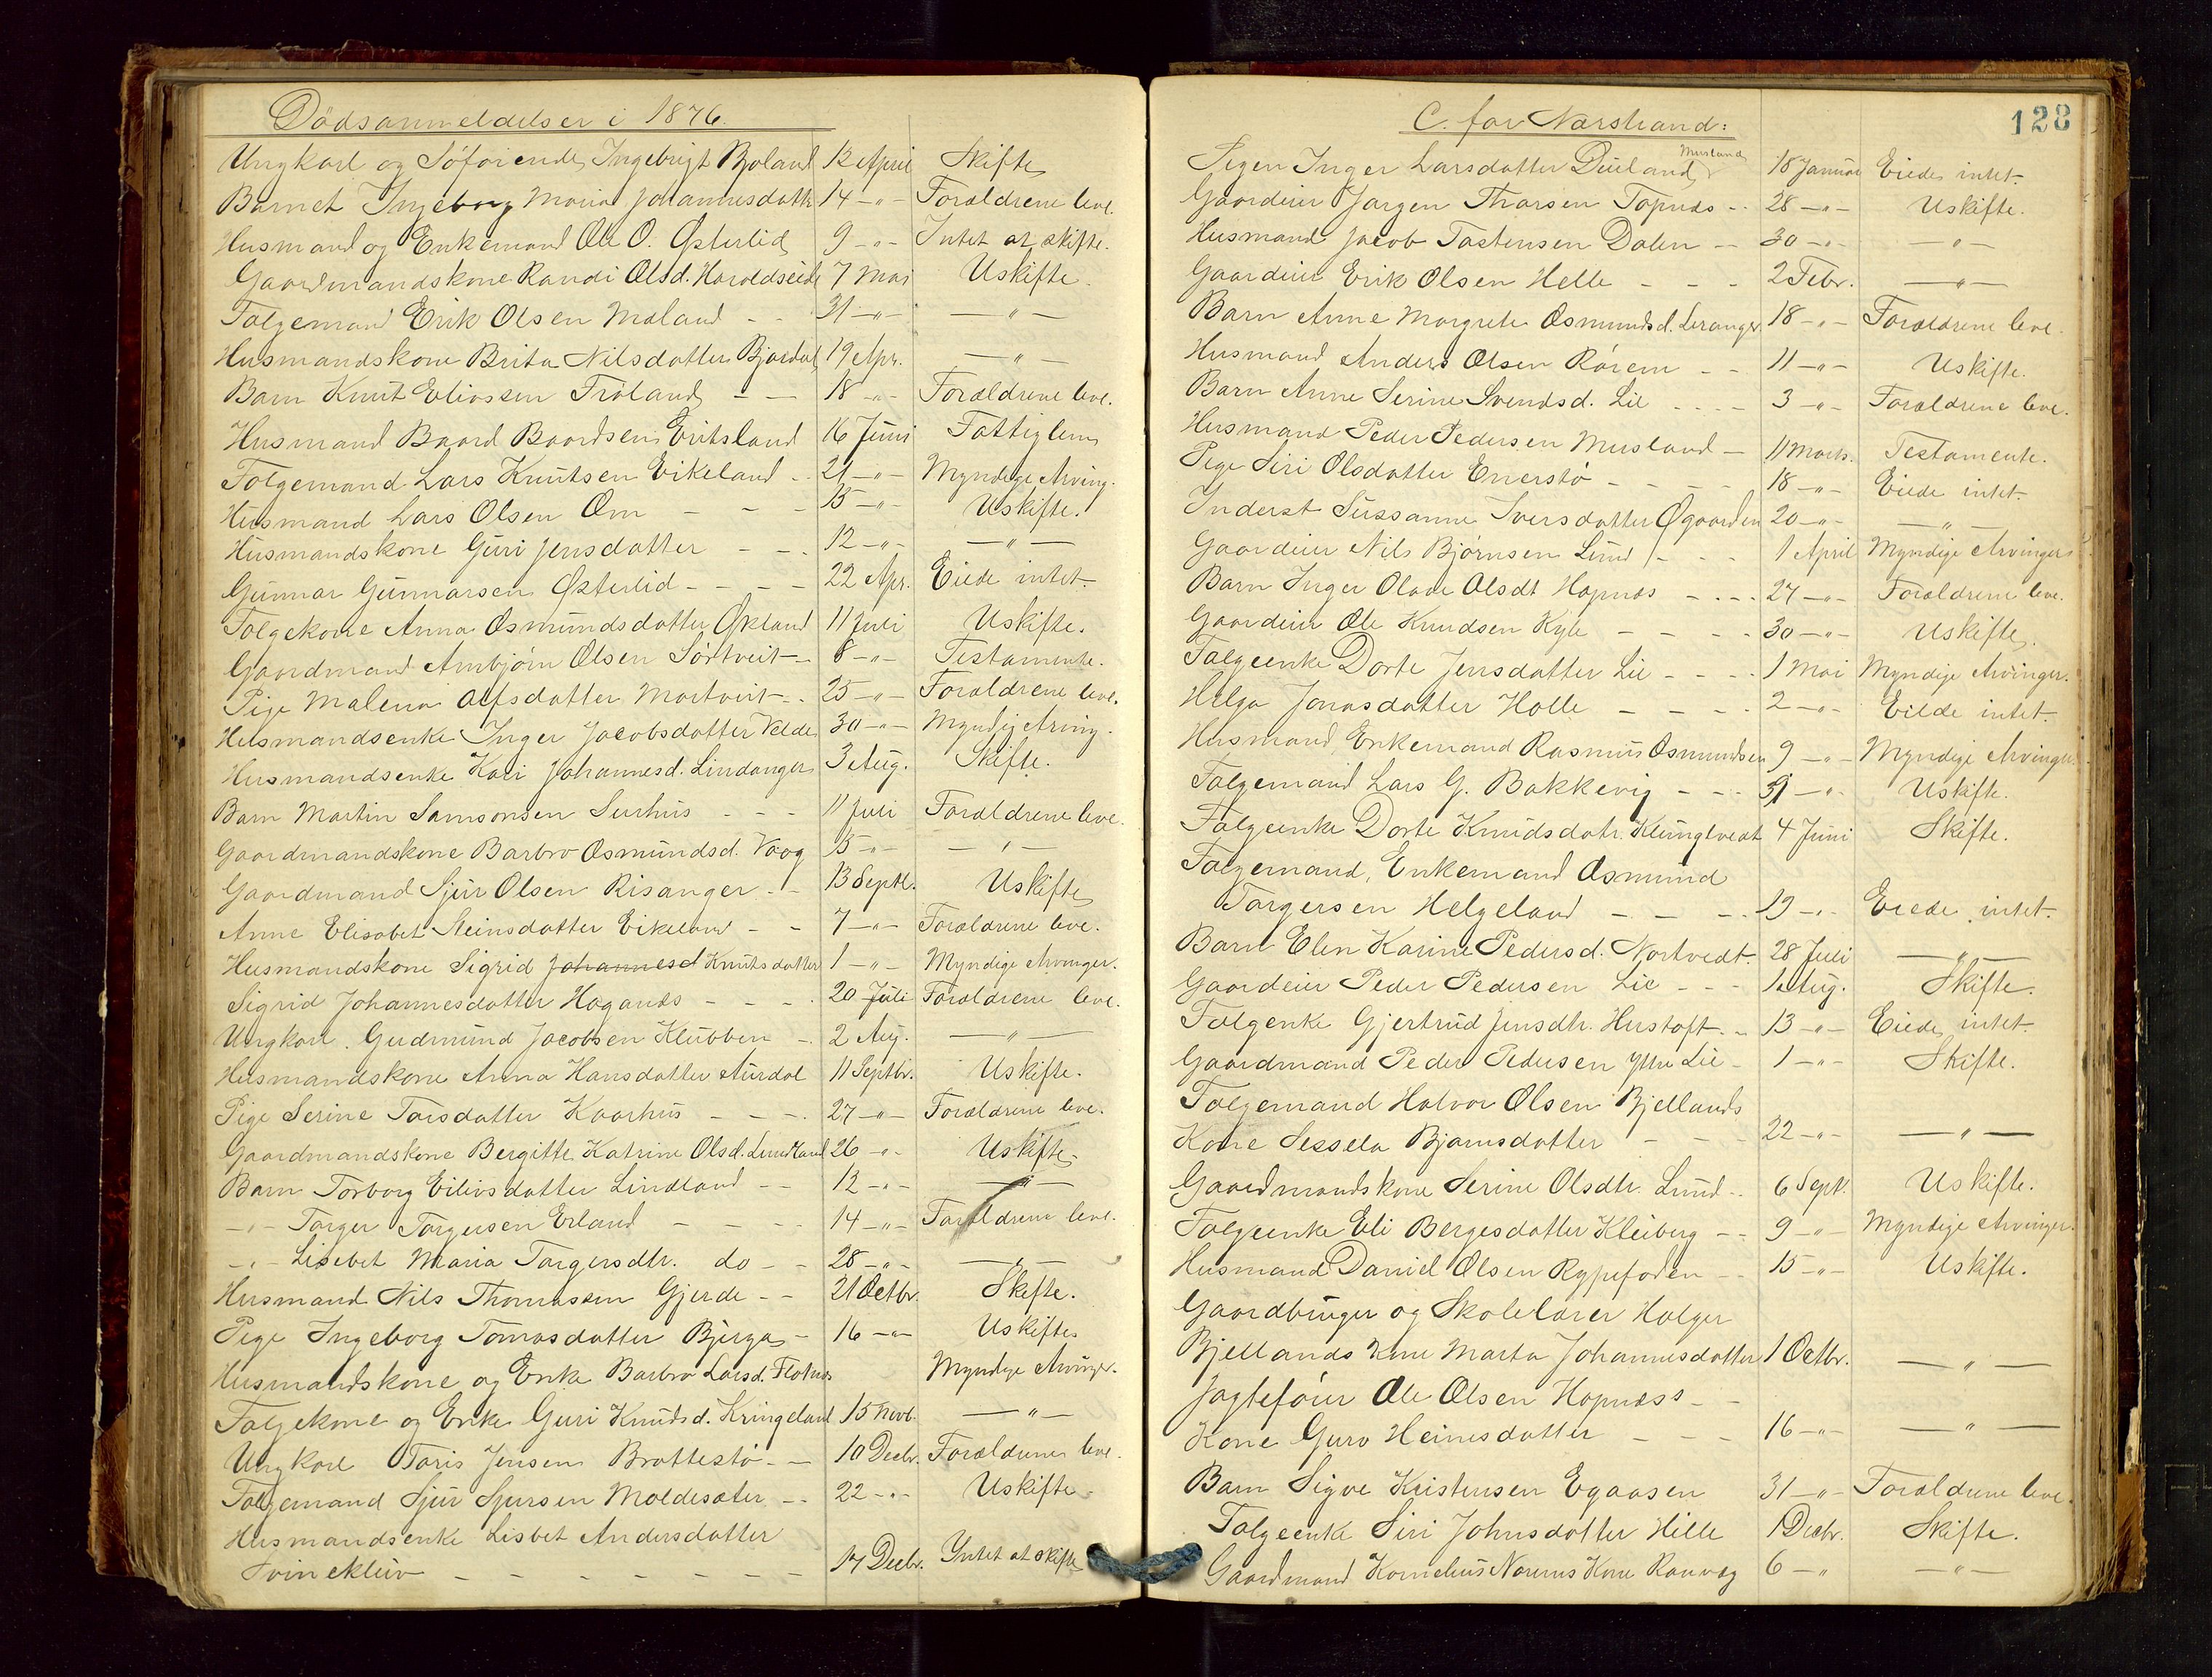 Dödsanmeldelser i 1876.
Ungkarl og Söfarende Ingebrigt Bjoland 12 April Skifte
Barnet Ingeborg Maria Johannesdatter 14 -"- Forældrene leve.
Husmand og Enkemand Ole O. Østerlid 9 -"- Intet at skifte.
Gaardmandskone Randi Olsd. Haroldseide 7 Mai Uskifte.
Folgemand Erik Olsen Maland - - 31 -"- -"-
Husmandskone Brita Nilsdatter Bjordal 19 Apr. -"-
Barn Knut Eliassen Tröland - - 18 -"- Forældrene leve.
Husmand Baard Baardsen Eritsland 16 Juni Fattiglem
Folgemand Lars Knutsen Eikeland - - 21 -"- Myndige Arving.
Husmand Lars Olsen Om - - - 15 -"- Uskifte.
Husmandskone Guri Jensdatter - - - 12 -"- -"-
Gunnar Gunnarsen Østerlid - - - - 22 Apr. Eiede intet.
Folgekone Anna Osmundsdatter Økland 11 Juli Uskifte.
Gaardmand Arnbjörn Olsen Sörtveit - - 8 -"- Testamente.
Pige Malena Olfsdatter Mortveit - - 25 -"- Forældrene leve.
Husmandsenke Inger Jacobsdatter Velde 30 -"- Myndig Arving.
Husmandsenke Kari Johannesd. Lindanger 3 Aug. Skifte.
Barn Martin Samsonsen Surhus - - - 11 Juli Forældrene leve.
Gaardmandskone Barbro Osmundsd. Vaag 15 -"- -"-
Gaardmand Sjur Olsen Risanger - - 13 Septb. Uskifte
Anne Elisabet Steinsdatter Eikeland - - 7 -"- Forældrene leve.
Husmandskone Sigrid Johannesd Knutsdatter 1 -"- Myndige Arvinger.
Sigrid Johannesdatter Hoganes - - - - 20 Juli Forældrene leve.
Ungkarl Gudmund Jacobsen Klubben - 2 Aug. -"-
Husmandskone Anna Hansdatter Aurdal 11 Septbr. Uskifte.
Pige Serine Tarsdatter Kaarhus - - - 27 -"- Forældrene leve.
Gaardmandskone Bergitte Katrine Olsd. Lundland 26 -"- Uskifte.
Barn Torborg Eiliosdatter Lindland - - 12 -"- -"-
-"- Torger Torgersen Erland - - - - 14 -"- Forældrene leve.
-"- Lisebet Maria Torgersdtr. do - - 28 -"- -"-
Husmand Nils Thomassen Gjerde - - 21 Octbr. Skifte.
Pige Ingeborg Tomasdatter Bjerga - 16 -"- Uskiftes
Husmandskone og Enke Barbro Larsd. Flotnes Myndige Arvinger.
Folgekone og Enke Guri Knudsd. Kringeland 15 Novb. -"-
Ungkarl Taris Jensen Brattestö - - 10 Decbr. Forældrene leve.
Folgemand Sjur Sjursen Moldesæter - - 22 -"- Uskifte
Husmandsenke Lisbet Andersdatter
Svinekleiv - - - - - - - 17 Decbr. Intet at skifte
C. for Nærstrand:
128
Musland
Pigen Inger Larsdatter Duland 18 Januar Eiede intet.
Gaardeier Jørgen Thorsen Topnæs - - 28 -"- Uskifte.
Husmand Jacob Tostensen Dalen - - 30 -"- -"-
Gaardeier Erik Olsen Helle - - - 2 Febr. -"-
Barn Anne Margrete Osmundsd. Leranger 18 -"- Forældrene leve.
Husmand Anders Olsen Rörem - - 11 -"- Uskifte.
Barn Anne Serine Svendsd. Lie - - - - 3 -"- Forældrene leve.
Husmand Peder Pedersen Musland - 11 Marts. Testamente.
Pige Siri Olsdatter Enerstö - - - - 18 -"- Eiede intet.
Inderst Sussanne Iversdatter Øgaarden 20 -"- -"-
Gaardeier Nils Bjørnsen Lund - - - 1 April Myndige Arvinger
Barn Inger Olave Olsdt Hopnæs - - - - 27 -"- Forældrene leve.
Gaardeier Ole Knudsen Kyle - - - - 30 -"- Uskifte.
Folgeenke Dorte Jensdatter Lie - - - - 1 Mai Myndige Arvinger.
Helga Jonasdatter Holle - - - - 2 -"- Eiede intet.
Husmand, Enkemand Rasmus Osmundsen 9 -"- Myndige Arvinger.
Folgemand Lars G. Bakkevig - - - 31 -"- Uskifte.
Folgeenke Dorte Knudsdatr. Klungtvedt 4 Juni Skifte.
Folgemand, Enkemand Osmund
Torgersen Helgeland - - - - 19 -"- Eiede intet.
Barn Elen Karine Pedersd. Nortvedt. 28 Juli -"-
Gaardeier Peder Pedersen Lie - - - 1 Aug. Skifte.
Folgenke Gjertrud Jensdtr. Hustoft. - 13 -"- Eiede intet.
Gaardmand Peder Pedersen Ytre Lie - 1 -"- Skifte.
Folgemand Halvor Olsen Bjellands
Kone Sessela Bjarnsdatter - - - 22 -"- -"-
Gaardmandskone Serine Olsdtr. Lund - - 6 Sept. Uskifte.
Folgeenke Eli Bergesdatter Kleiberg - - 9 -"- Myndige Arvinger.
Husmand Daniel Olsen Rypefoden - - 15 -"- Uskifte.
Gaardbruger og Skolelærer Holger
Bjellands Kone Marta Johannesdatter 1 Octbr. -"-
Jagteföier Ole Olsen Hopnæss - -
Kone Guro Heinesdatter - - - 16 -"- -"-
Barn Sigve Kristensen Egaasen 31 -"- Forældrene leve.
Folgeenke Siri Johnsdatter Hille 1 Decbr. Skifte.
Gaardmand Kornelius Nærems Kone Ranveg 6 -"- -"-